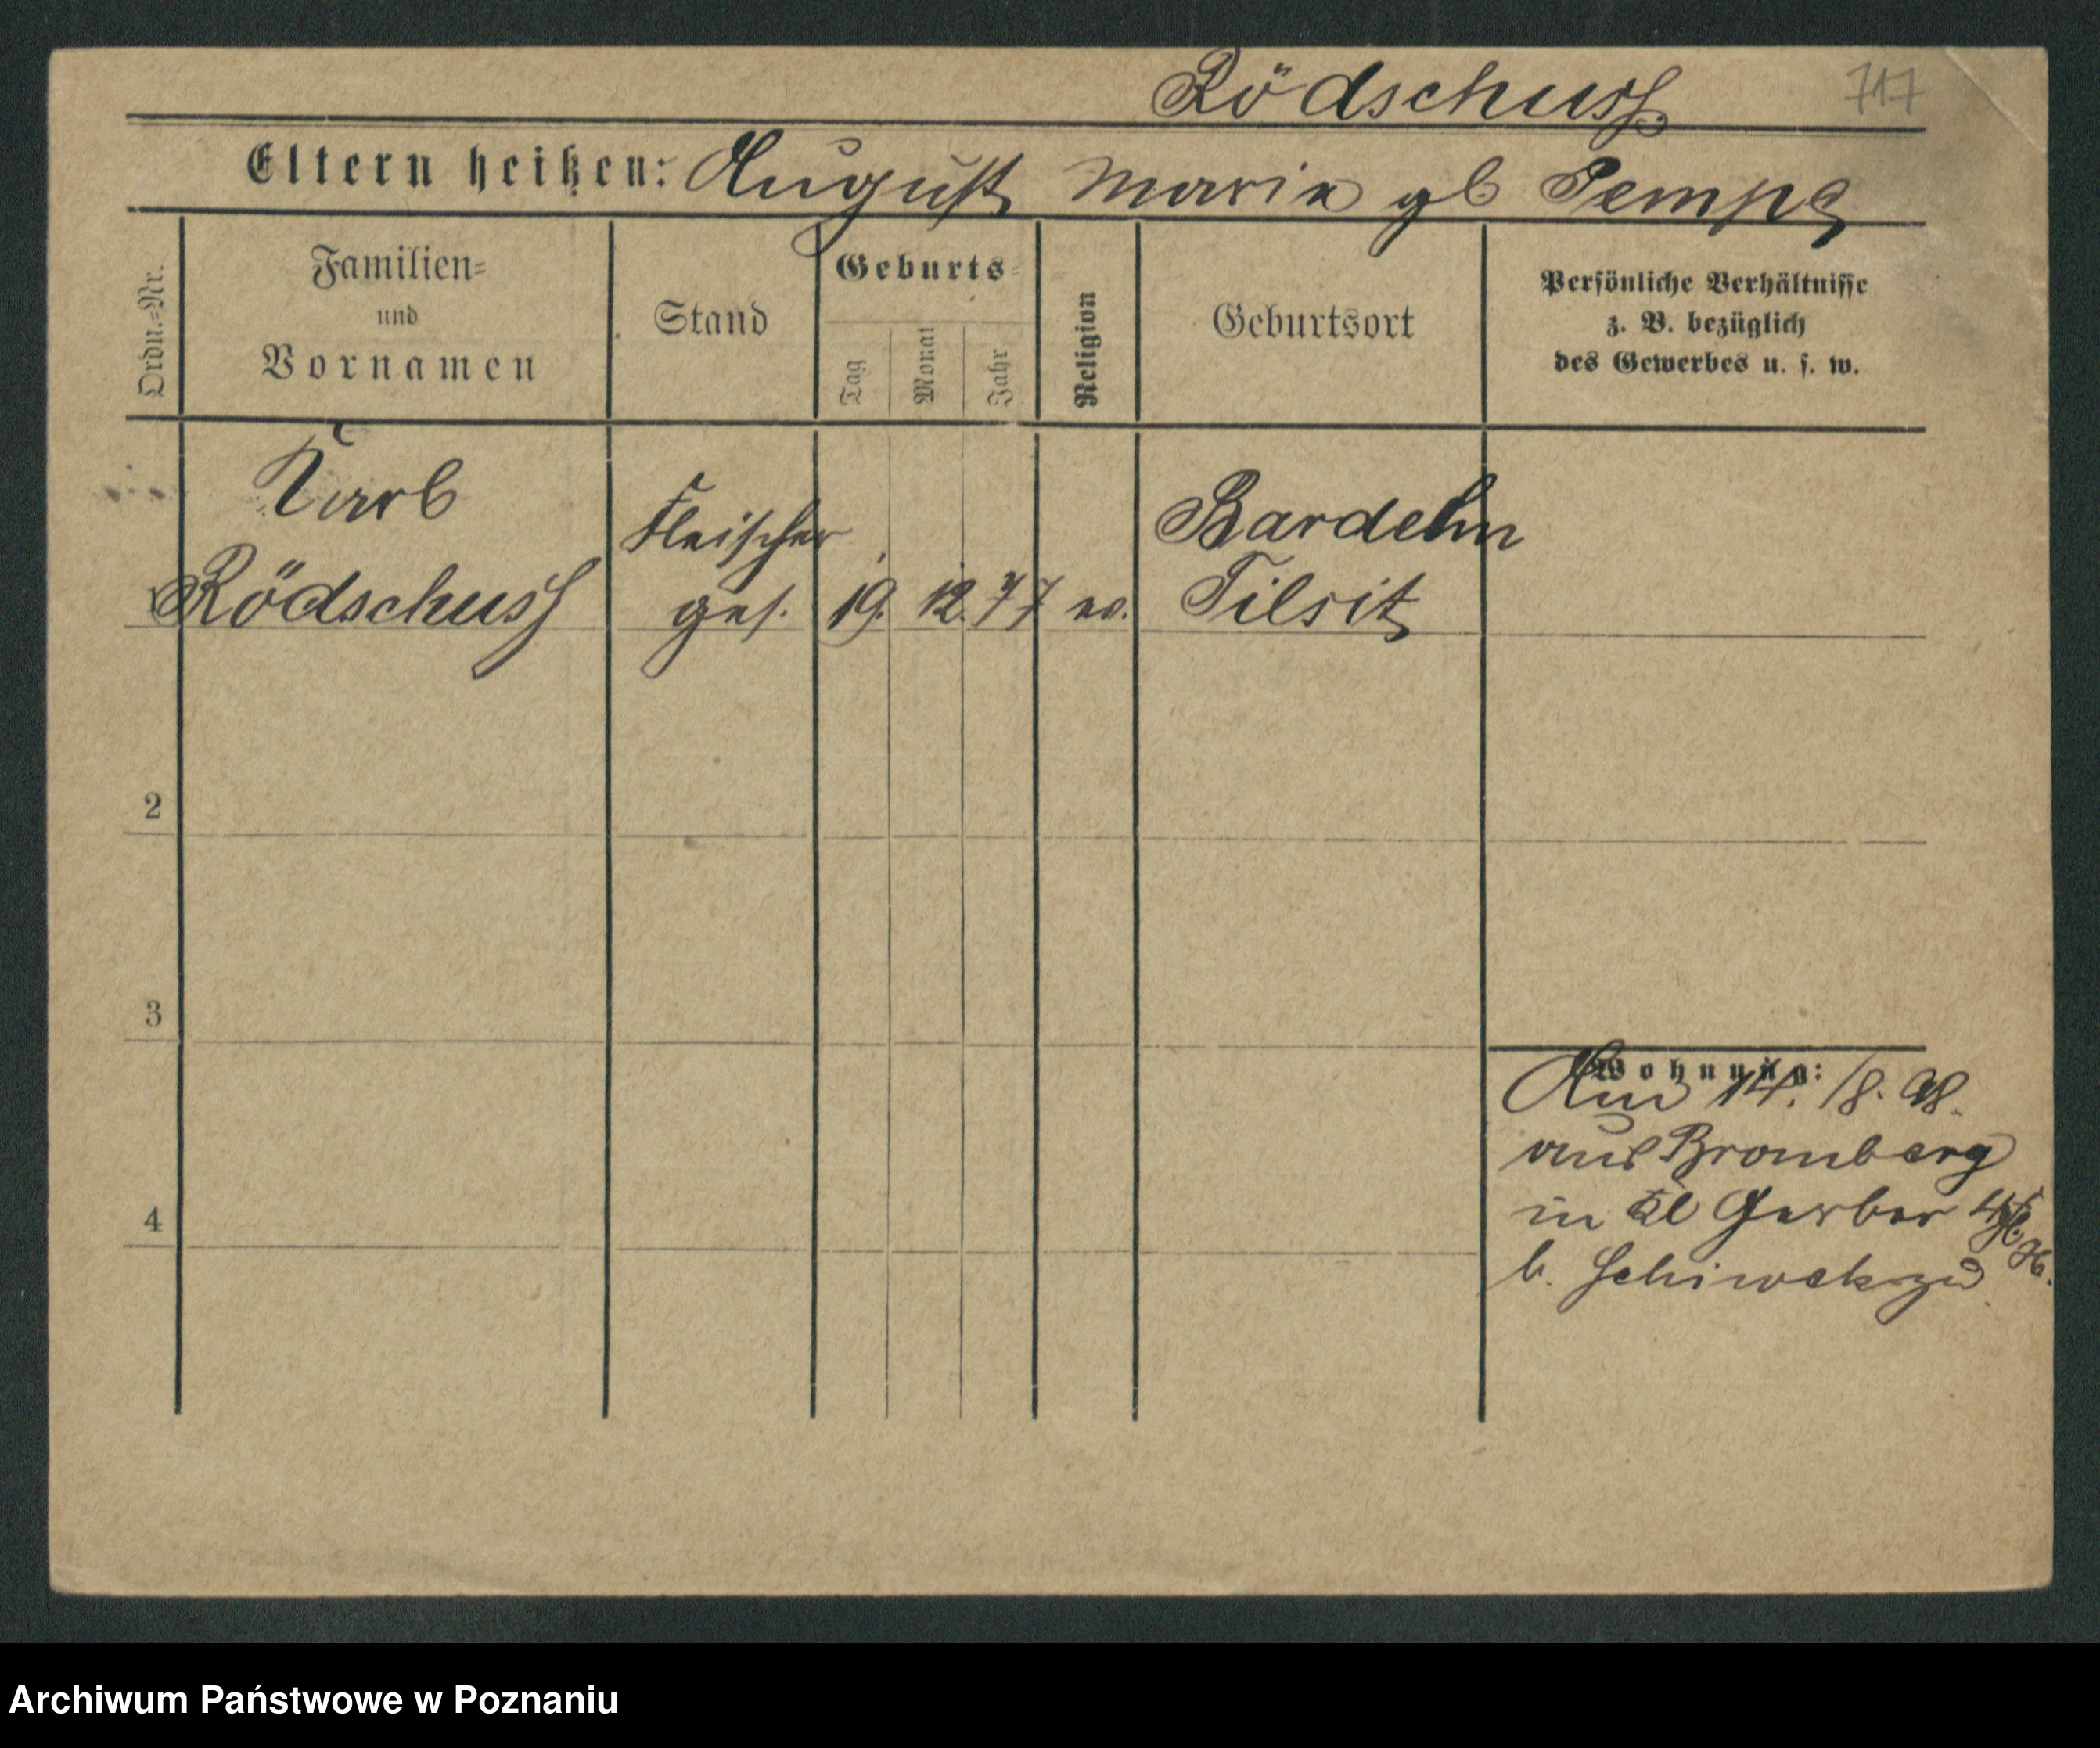 Rödschuss
717
Eltern heißen: August Maria gb Temps
Ordn.=Nr.
Familien=
und
Vornamen
Stand
Geburts=
Tag
Monat
Jahr
Religion
Geburtsort
Persönliche Verhältnisse
z. B. bezüglich
des Gewerbes u. s. w.
Karl
Rödschuss
Fleischer
ges.
19. 12. 77
ev.
Bardehn
Tilsit
2
3
4
Wohnung:
14./8. 98.
aus Bromberg
in Kl Gerber
b. Schiwek zu
Archiwum Państwowe w Poznaniu